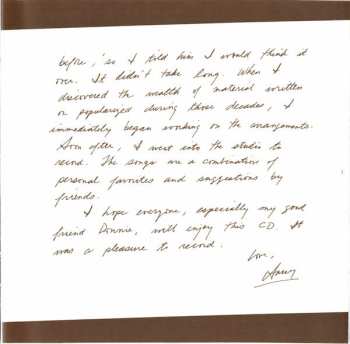 before, so I told him I would think it
over. It didn't take long. When I
discovered the wealth of material written
or popularized during those decades, I
immediately began working on the arrangements.
Soon after, I went into the studio to
record. The songs are a combination of
personal favorites and suggestions by
friends.
I hope everyone, especially my good
friend Donnie, will enjoy this CD. It
was a pleasure to record.
Love,